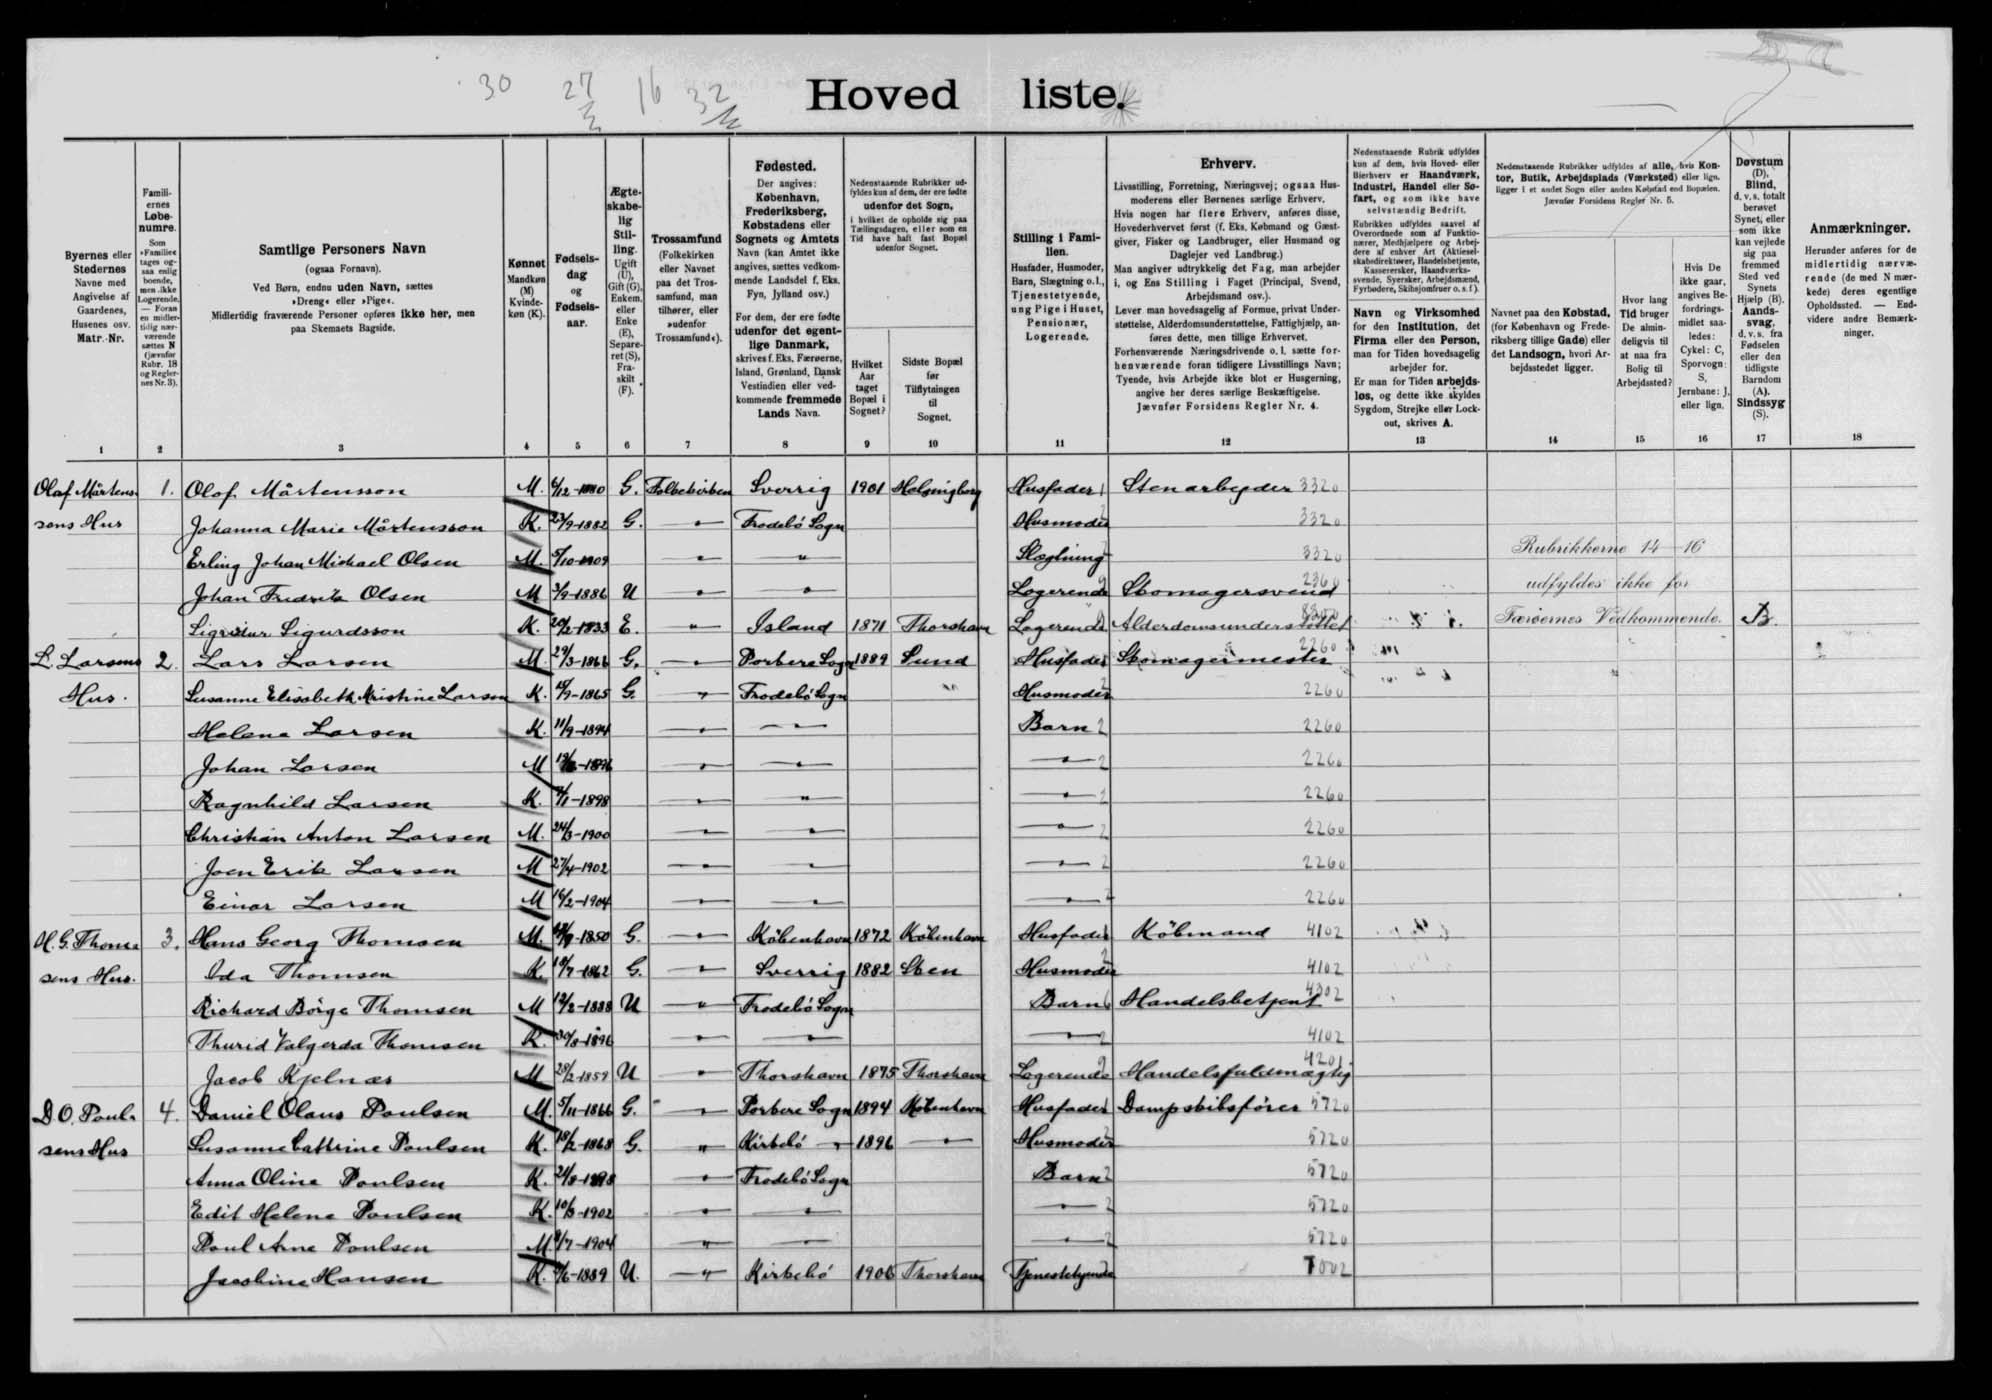 30 27 16 32
Hoved liste.
Byernes eller Stedernes Navne med Angivelse af Gaardenes, Husenes osv. Matr.-Nr.
Famili- ernes Løbe- numre. Som »Familie« tages og- saa enlig boende, men ikke Logerende. — Foran en midler- tidig nær- værende sættes N (jævnfør Rubr. 18 og Regler- nes Nr. 3).
Samtlige Personers Navn (ogsaa Fornavn). Ved Børn, endnu uden Navn, sættes »Dreng« eller »Pige«. Midlertidig fraværende Personer opføres ikke her, men paa Skemaets Bagside.
Kønnet Mandkøn (M) Kvinde- køn (K).
Fødsels- dag og Fødsels- aar.
Ægte- skabe- lig Stil- ling. Ugift (U), Gift (G), Enkem. eller Enke (E), Separe- ret (S), Fra- skilt (F).
Trossamfund (Folkekirken eller Navnet paa det Tros- samfund, man tilhører, eller »udenfor Trossamfund«).
Fødested. Der angives: København, Frederiksberg, Købstadens eller Sognets og Amtets Navn (kan Amtet ikke angives, sættes vedkom- mende Landsdel f. Eks. Fyn, Jylland osv.) For dem, der ere fødte udenfor det egent- lige Danmark, skrives f. Eks. Færøerne, Island, Grønland, Dansk Vestindien eller ved- kommende fremmede Lands Navn.
Nedenstaaende Rubrikker ud- fyldes kun af dem, der ere fødte udenfor det Sogn, i hvilket de opholde sig paa Tællingsdagen, eller som en Tid have haft fast Bopæl udenfor Sognet.
Hvilket Aar taget Bopæl i Sognet?
Sidste Bopæl før Tilflytningen til Sognet.
Stilling i Fami- lien. Husfader, Husmoder, Barn, Slægtning o.l., Tjenestetyende, ung Pige i Huset, Pensionær, Logerende.
Erhverv. Livsstilling, Forretning, Næringsvej; ogsaa Hus- moderens eller Børnenes særlige Erhverv. Hvis nogen har flere Erhverv, anføres disse, Hovederhvervet først (f. Eks. Købmand og Gæst- giver, Fisker og Landbruger, eller Husmand og Daglejer ved Landbrug.) Man angiver udtrykkelig det Fag, man arbejder i, og Ens Stilling i Faget (Principal, Svend, Arbejdsmand osv.). Lever man hovedsagelig af Formue, privat Under- støttelse, Alderdomsunderstøttelse, Fattighjælp, an- føres dette, men tillige Erhvervet. Forhenværende Næringsdrivende o. l. sætte for- henværende foran tidligere Livsstillings Navn; Tyende, hvis Arbejde ikke blot er Husgerning, angive her deres særlige Beskæftigelse. Jævnfør Forsidens Regler Nr. 4.
Nedenstaaende Rubrik udfyldes kun af dem, hvis Hoved- eller Bierhverv er Haandværk, Industri, Handel eller Sø- fart, og som ikke have selvstændig Bedrift. Rubrikken udfyldes saavel af Overordnede som af Funktio- nærer, Medhjælpere og Arbej- dere af enhver Art (Aktiesel- skabsdirektører, Handelsbetjente, Kasserersker, Haandværks- svende, Syersker, Arbejdsmænd, Fyrbødere, Skibsjomfruer o. s. f.).
Navn og Virksomhed for den Institution, det Firma eller den Person, man for Tiden hovedsagelig arbejder for. Er man for Tiden arbejds- løs, og dette ikke skyldes Sygdom, Strejke eller Lock- out, skrives A.
Nedenstaaende Rubrikker udfyldes af alle, hvis Kon- tor, Butik, Arbejdsplads (Værksted) eller lign. ligger i et andet Sogn eller anden Købstad end Bopælen. Jævnfør Forsidens Regler Nr. 5.
Navnet paa den Købstad, (for København og Frede- riksberg tillige Gade) eller det Landsogn, hvori Ar- bejdsstedet ligger.
Hvor lang Tid bruger De almin- deligvis til at naa fra Bolig til Arbejdssted?
Hvis De ikke gaar, angives Be- fordrings- midlet saa- ledes: Cykel: C, Sporvogn: S, Jernbane: J, eller lign.
Døvstum (D), Blind, d. v. s. totalt berøvet Synet, eller som ikke kan vejlede sig paa fremmed Sted ved Synets Hjælp (B). Aands- svag, d. v. s. fra Fødselen eller den tidligste Barndom (A). Sindssyg (S).
Anmærkninger. Herunder anføres for de midlertidig nærvæ- rende (de med N mær- kede) deres egentlige Opholdssted. — End- videre andre Bemærk- ninger.
1 2 3 4 5 6 7 8 9 10 11 12 13 14 15 16 17 18
Olaf Mårtens- 1. Olof Mårtensson M. 6/12-1880 G. Folkekirken Sverrig 1901 Helsingborg Husfader 1 Stenarbejder 3320
sens Hus Johanna Marie Mårtensson K. 23/9-1882 G. — " — Frodebö Sogn Husmoder 2 3320
Erling Johan Michael Olsen M. 5/10-1909 — " — — " — Slægtning 3320 Rubrikkerne 14-16
Johan Fredrik Olsen M 3/9-1886 U — " — — " — Logerende Skomagersvend 2360 udfyldes ikke for
Sigurdsson K. 20/2-1833 E. — " — Island 1871 Thorshavn Logerende Alderdomsunderstöttet Færøernes Vedkommende. B.
L. Larsens 2. Lars Larsen M. 29/3-1866 G. — " — Porkere Sogn 1889 Sund Husfader 1 Skomagermester 2260
Hus. Susanne Elisabeth Kristine Larsen K. 18/9-1865 G. — " — Frodebö Sogn Husmoder 2 2260
Helene Larsen K. 11/9-1894 — " — — " — Barn 2 2260
Johan Larsen M — " — — " — — " — 2 2260
Ragnhild Larsen K. 4/1-1898 — " — — " — — " — 2 2260
Christian Anton Larsen M. 24/3-1900 — " — — " — — " — 2 2260
Joen Erik Larsen M 27/4-1902 — " — — " — — " — 2 2260
Einar Larsen M 16/2-1904 — " — — " — — " — 2 2260
H. G. Thom- 3. Hans Georg Thomsen M. 1850 G. — " — Köbenhavn 1872 Köbenhavn Husfader 1 Köbmand 4102
sens Hus. Ida Thomsen K. 10/7-1862 G. — " — Sverrig 1882 Sten Husmoder 2 4102
Richard Börge Thomsen M 12/2-1888 U — " — Frodebö Sogn Barn Handelsbetjent 4302
Thurid Valgerda Thomsen K. 30/8-1896 — " — — " — — " — 2 4102
Jacob Kjelnæs M 28/2-1859 U — " — Thorshavn 1875 Thorshavn Logerende Handelsfuldmægtig 4201
D O. Pouls- 4. Daniel Olaus Poulsen M. 5/11-1866 G. — " — Porkere Sogn 1894 Köbenhavn Husfader 1 Dampskibsförer 5720
sens Hus Susanne Cathrine Poulsen K. 18/2-1868 G. — " — Kirkebö — " — 1896 — " — Husmoder 2 5720
Anna Oline Poulsen K. 24/8-1898 — " — Frodebö Sogn Barn 2 5720
Edit Helene Poulsen K. 10/3-1902 — " — — " — — " — 2 5720
Poul Arne Poulsen M. 8/7-1904 — " — — " — — " — 2 5720
Jacobine Hansen K. 1889 U. — " — Kirkebö 1906 Thorshavn Tjenestetyende 7002